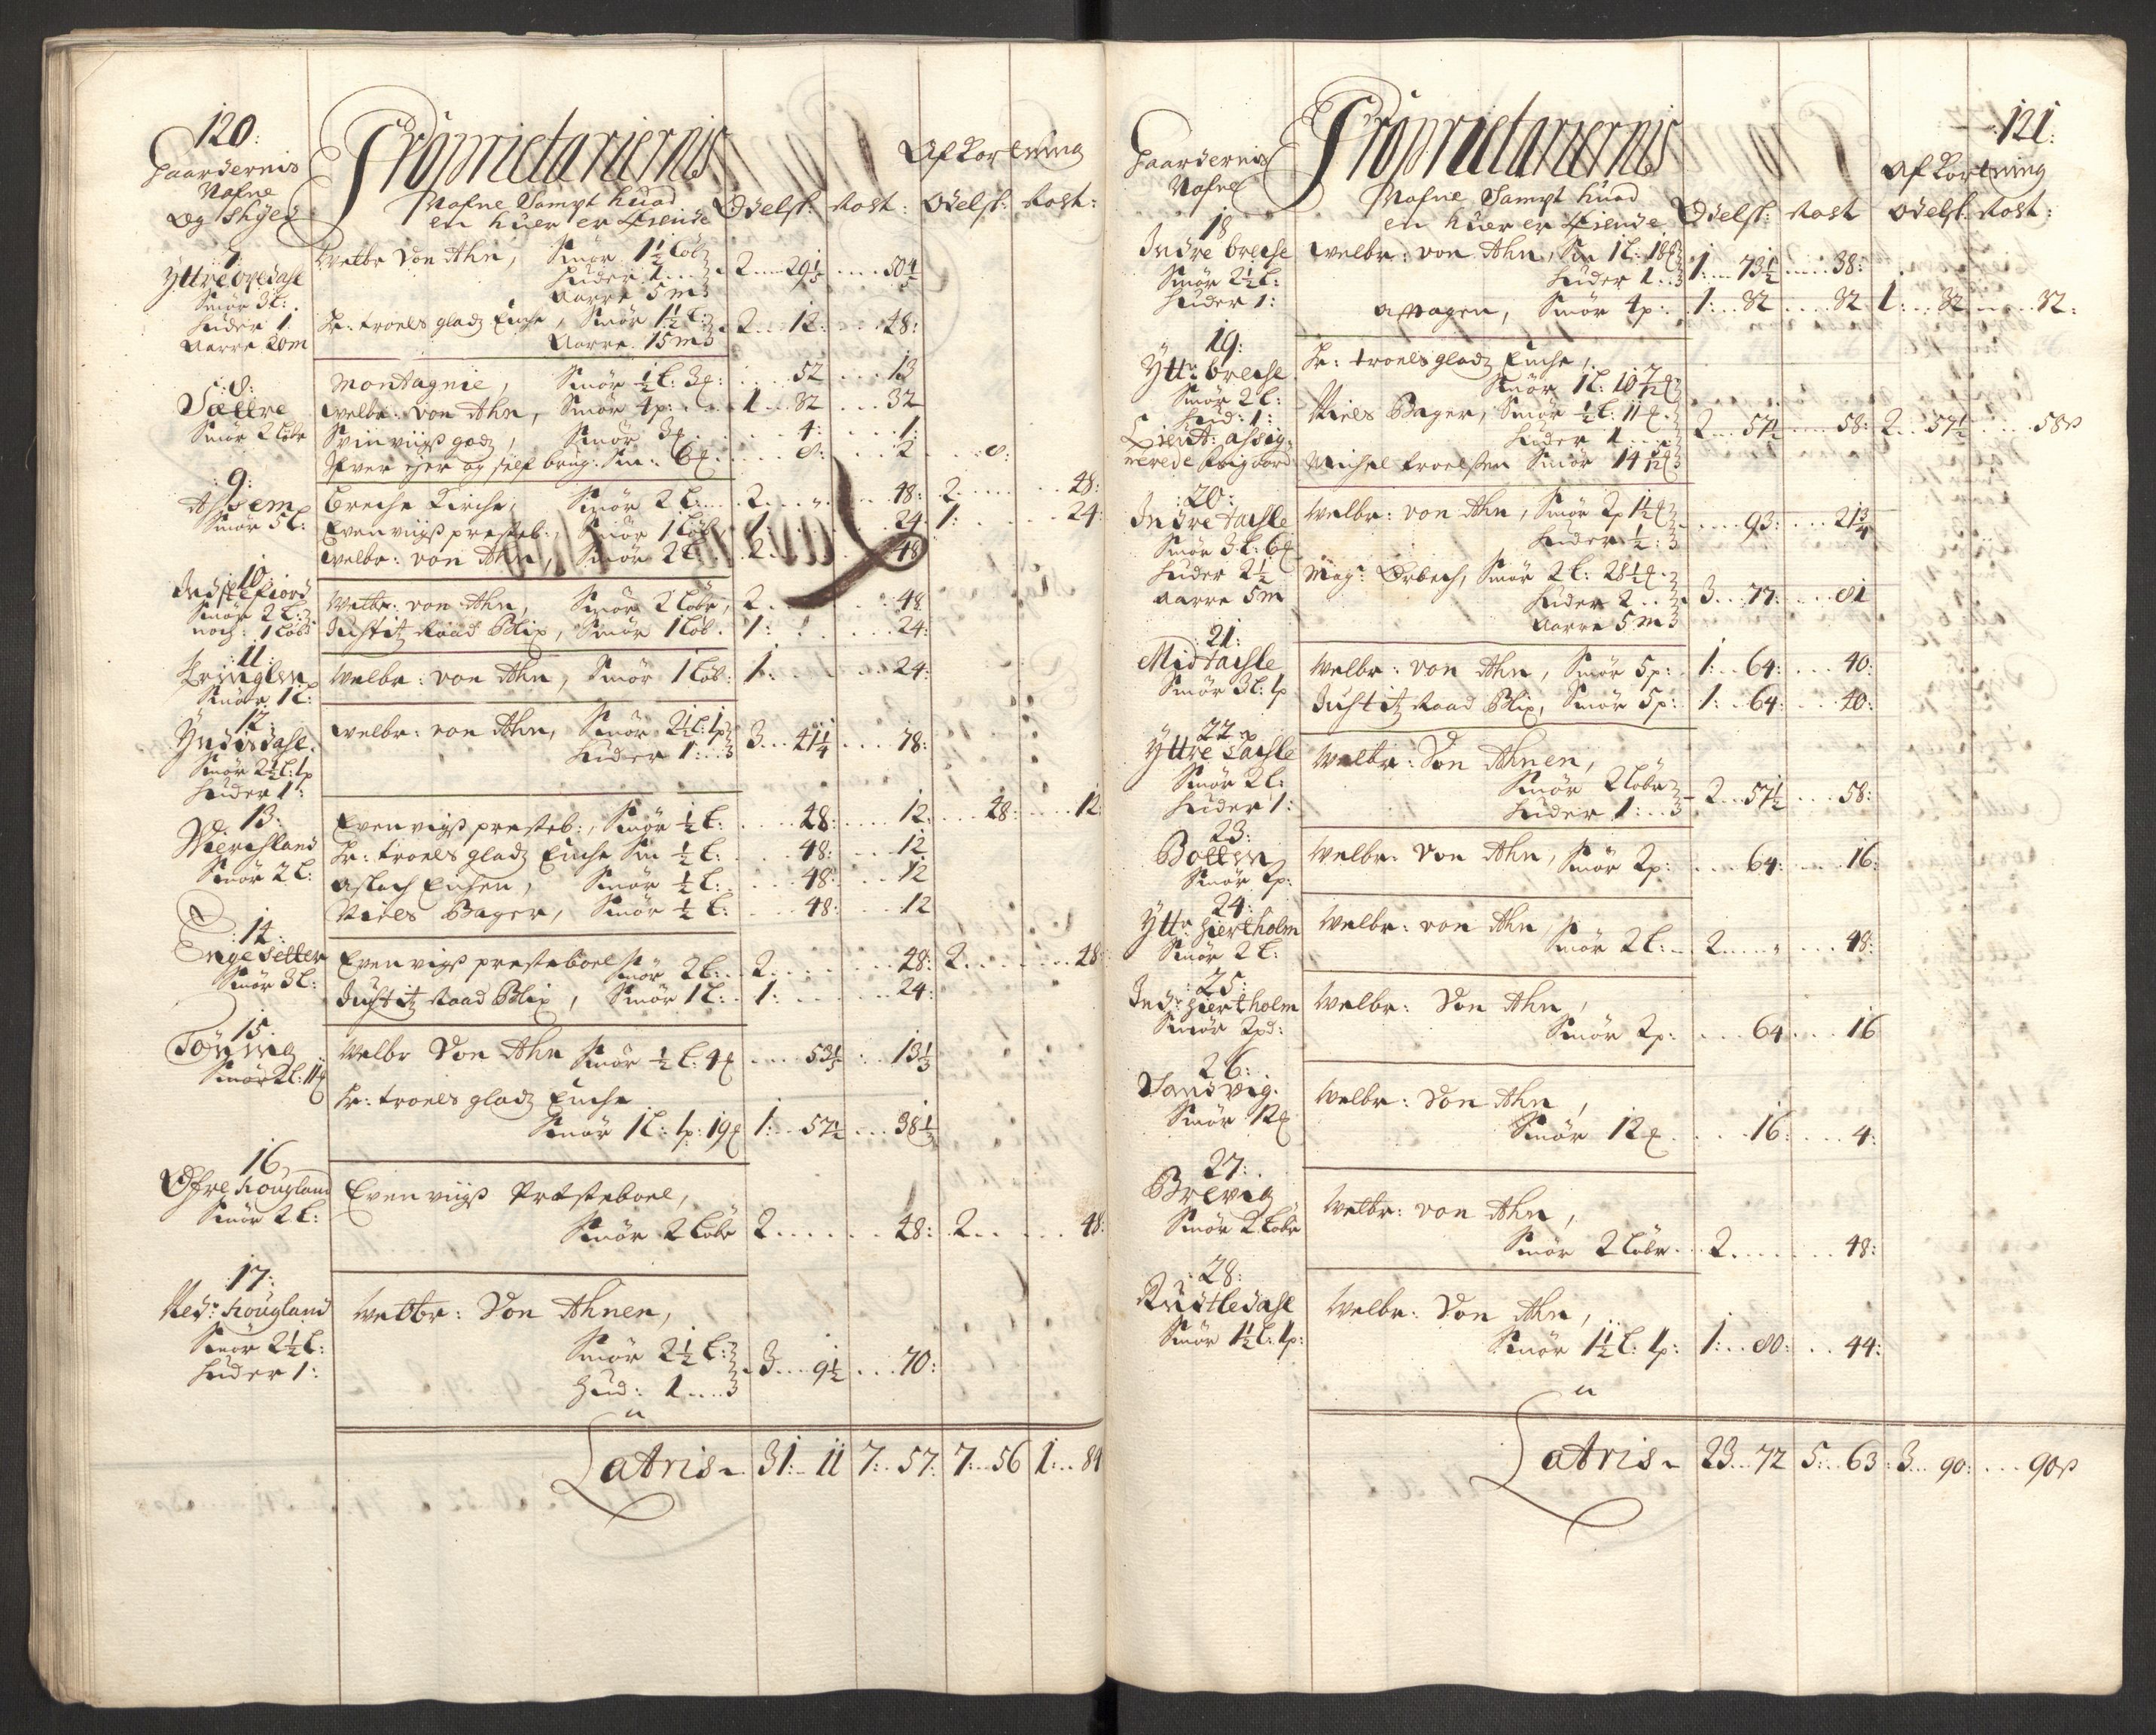 120:
Gaardernis
Nafne
og Skyld
Proprietariernis
Nafne Sampt huad
en huer er Eiende
Odelsk: Rost:
Afkortning
Odelsk: Rost:
7:
Yttre opedahl
Smør 3 l:
Huder 1
Aarre 20 m
Welbr Von Ahn, Smør 1½ løb
Huder 1 2 29⅕ 50⅘
Aarre 5 m
Hr: troels gladtz Enche, Smør 1½ l: 2 12: 48:
Aarre 15 m
8:
Sættre
Smør 2 løbr
Montagnie, Smør ½ l: 3 52 13
Welbr: von Ahn, Smør 4 p: 1 32 32
Svinviigs godtz, Smør 3 4: 1:
Ifver ejer og self brug: Sm: 6 8: 2 8:
9:
Assem
Smør 5 l:
Breche Kirche, Smør 2 l: 2 48: 2 48:
Evenviigs presteb:, Smør 1 løb 1: 24 1: 24:
Welbr: von Ahn, Smør 2 l: 2 48
10:
Indstefiord
Smør 2 l:
noch: 1 løb
Welbr: von Ahn, Smør 2 løbr, 2 48
Justitz Raad Blix, Smør 1 løb. 1: 24:
11:
Smør 1 l:
Welbr: von Ahn, Smør 1 løb: 1: 24:
12:
Yndredahl.
Smør 2½ l: 1 p
Huder 1:
Welbr: von Ahn, Smør 2½ l: 1 p 3 41¼ 78:
Huder 1:
13:
Vierchland
Smør 2 l:
Evenvigs presteb:, Smør ½ l: 48: 12: 48: 12:
Hr: troels gladtz Enche Sm ½ l: 48: 12
Aslach Ensen, Smør ½ l: 48: 12
Niels Bager, Smør ½ l: 48: 12
14:
Engesetter
Smør 3 l:
Evenvigs presteboel Smør 2 l: 2 48: 2 48
Justitz Raad Blix, Smør 1 l: 1: 24:
15:
Tønning
Smør 2 l: 11
Welbr Von Ahn Smør ½ l: 4 53⅓ 13⅓
Hr: troels gladtz Enche
Smør 1 l: 1 p: 19 1: 57½ 38⅓
16
Øfre Hougland
Smør 2 l:
Evenviigs Præsteboel,
Smør 2 løbr 2 48: 2 48:
17:
Nedr: Hougland
Smør 2½ l:
Huder 1:
Welbr: Von Ahnen,
Smør 2½ l: 3 9½ 70:
Hud: 1
Latris 31: 11 7: 57: 7: 56 1: 84
121:
Gaardernis
Nafne
Proprietariernis
Nafne Sampt huad
en huer er Eiende
Odelsk: Rost
Afkortning
Odelsk: Rost:
18
Indre breche
Smør 2½ l:
Huder 1:
Welbr: von Ahn, Sm 1 l: 18
Huder 1 1: 73½ 38:
Smør 4 p: 1: 32 32 1: 32 32:
19:
Yttr: breche
Smør 2 l:
Hud: 1:
Lieut: assig-
nerede
Hr: troels gladtz Enche,
Smør 1 l: 10
Niels Bager, Smør ½ l: 11
Huder 1 2 57½ 58: 2 57½ 58 s
Michel troelsen Smør 14
20:
Indre tachle
Smør 3 l: 6
Huder 2½
Aarre 5 m
Welbr: von Ahn, Smør 2 p 1½
Huder ½: 93: 21¾
Mag: Ørbech, Smør 2 l: 28½
Huder 2 3 77: 81
Aarre 5 m
21:
Midtachle
Smør 3 l: 1 p
Welbr: von Ahn, Smør 5 p: 1: 64: 40:
Justitz Raad Blix, Smør 5 p: 1: 64: 40:
22
Yttre tachle
Smør 2 l:
Huder 1:
Welbr: Von Ahnen,
Smør 2 løbr
Huder 1: 2 57½ 58:
23:
Bottn
Smør 2 p:
Welbr: Von Ahn, Smør 2 p: 64: 16:
24:
Yttr hiertholm
Smør 2 l:
Welbr: von Ahn
Smør 2 l: 2 48:
25:
Indr: hiertholm
Smør 2 pd:
Welbr: Von Ahn,
Smør 2 p: 64 16
26:
Sandvig.
Smør 12
Welbr: Von Ahn,
Smør 12 16: 4:
27:
Brevig
Smør 2 løbr
Welbr: von Ahn,
Smør 2 løbr 2 48:
28:
Rustledahl
Smør 1½ l: 1 p:
Welbr: Von Ahn,
Smør 1½ l: 1 p: 1: 80: 44:
Latris 23 72 5: 63: 3 90: 90 s